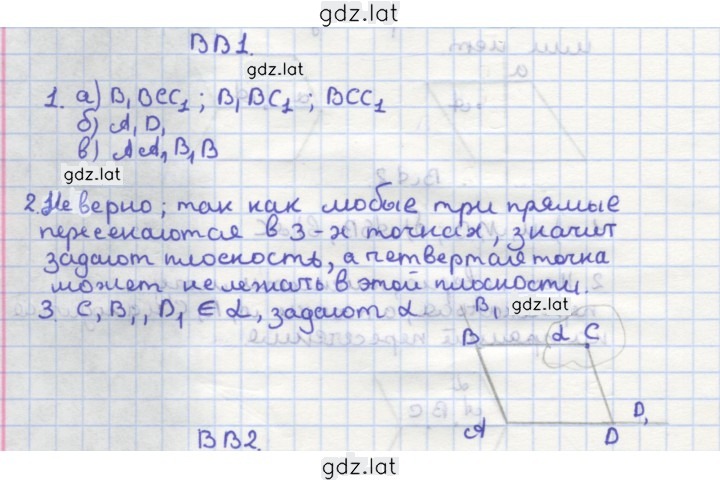 gdz.lat
ВВ1.
gdz.lat
1. а) B₁BCC₁; B₁BC₁; BCC₁
б) A₁D₁
в) AA₁B₁B
gdz.lat
2. Неверно; так как любые три прямые
пересекаются в 3-х точках, значит
задают плоскость, а четвертая точка
может не лежать в этой плоскости.
3. C, B₁, D₁ ∈ α, задают α
B₁ gdz.lat
B α C
A D D₁
ВВ2.
gdz.lat